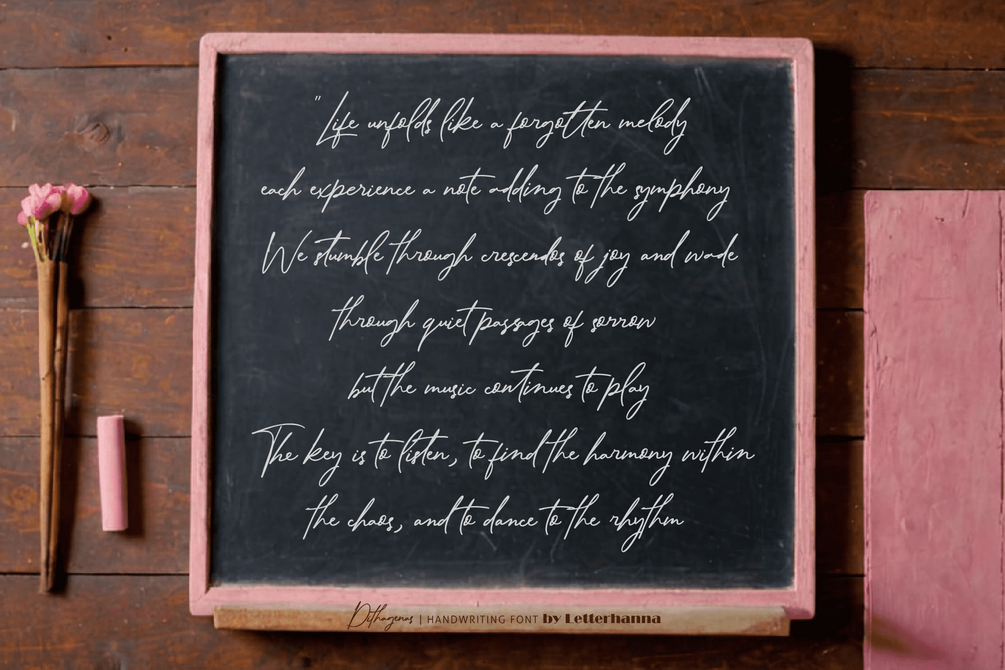 "Life unfolds like a forgotten melody
each experience a note adding to the symphony
We stumble through crescendos of joy and wade
through quiet passages of sorrow
but the music continues to play
The key is to listen, to find the harmony within
the chaos, and to dance to the rhythm
Dithagenas | HANDWRITING FONT by Letterhanna